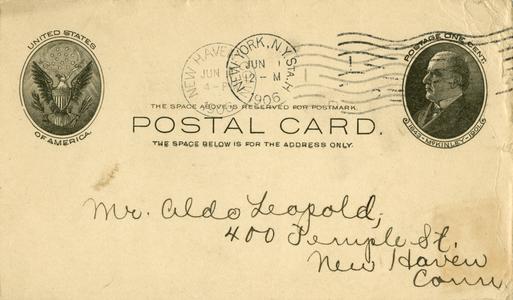 UNITED STATES
OF AMERICA.
NEW HAVEN
JUN
4-P
NEW YORK, N.Y. STA. H
JUN 1
12-M
1906
POSTAGE ONE CENT.
1843-McKINLEY-1901.
THE SPACE ABOVE IS RESERVED FOR POSTMARK.
POSTAL CARD.
THE SPACE BELOW IS FOR THE ADDRESS ONLY.
Mr. Aldo Leopold,
400 Temple St.
New Haven
Conn